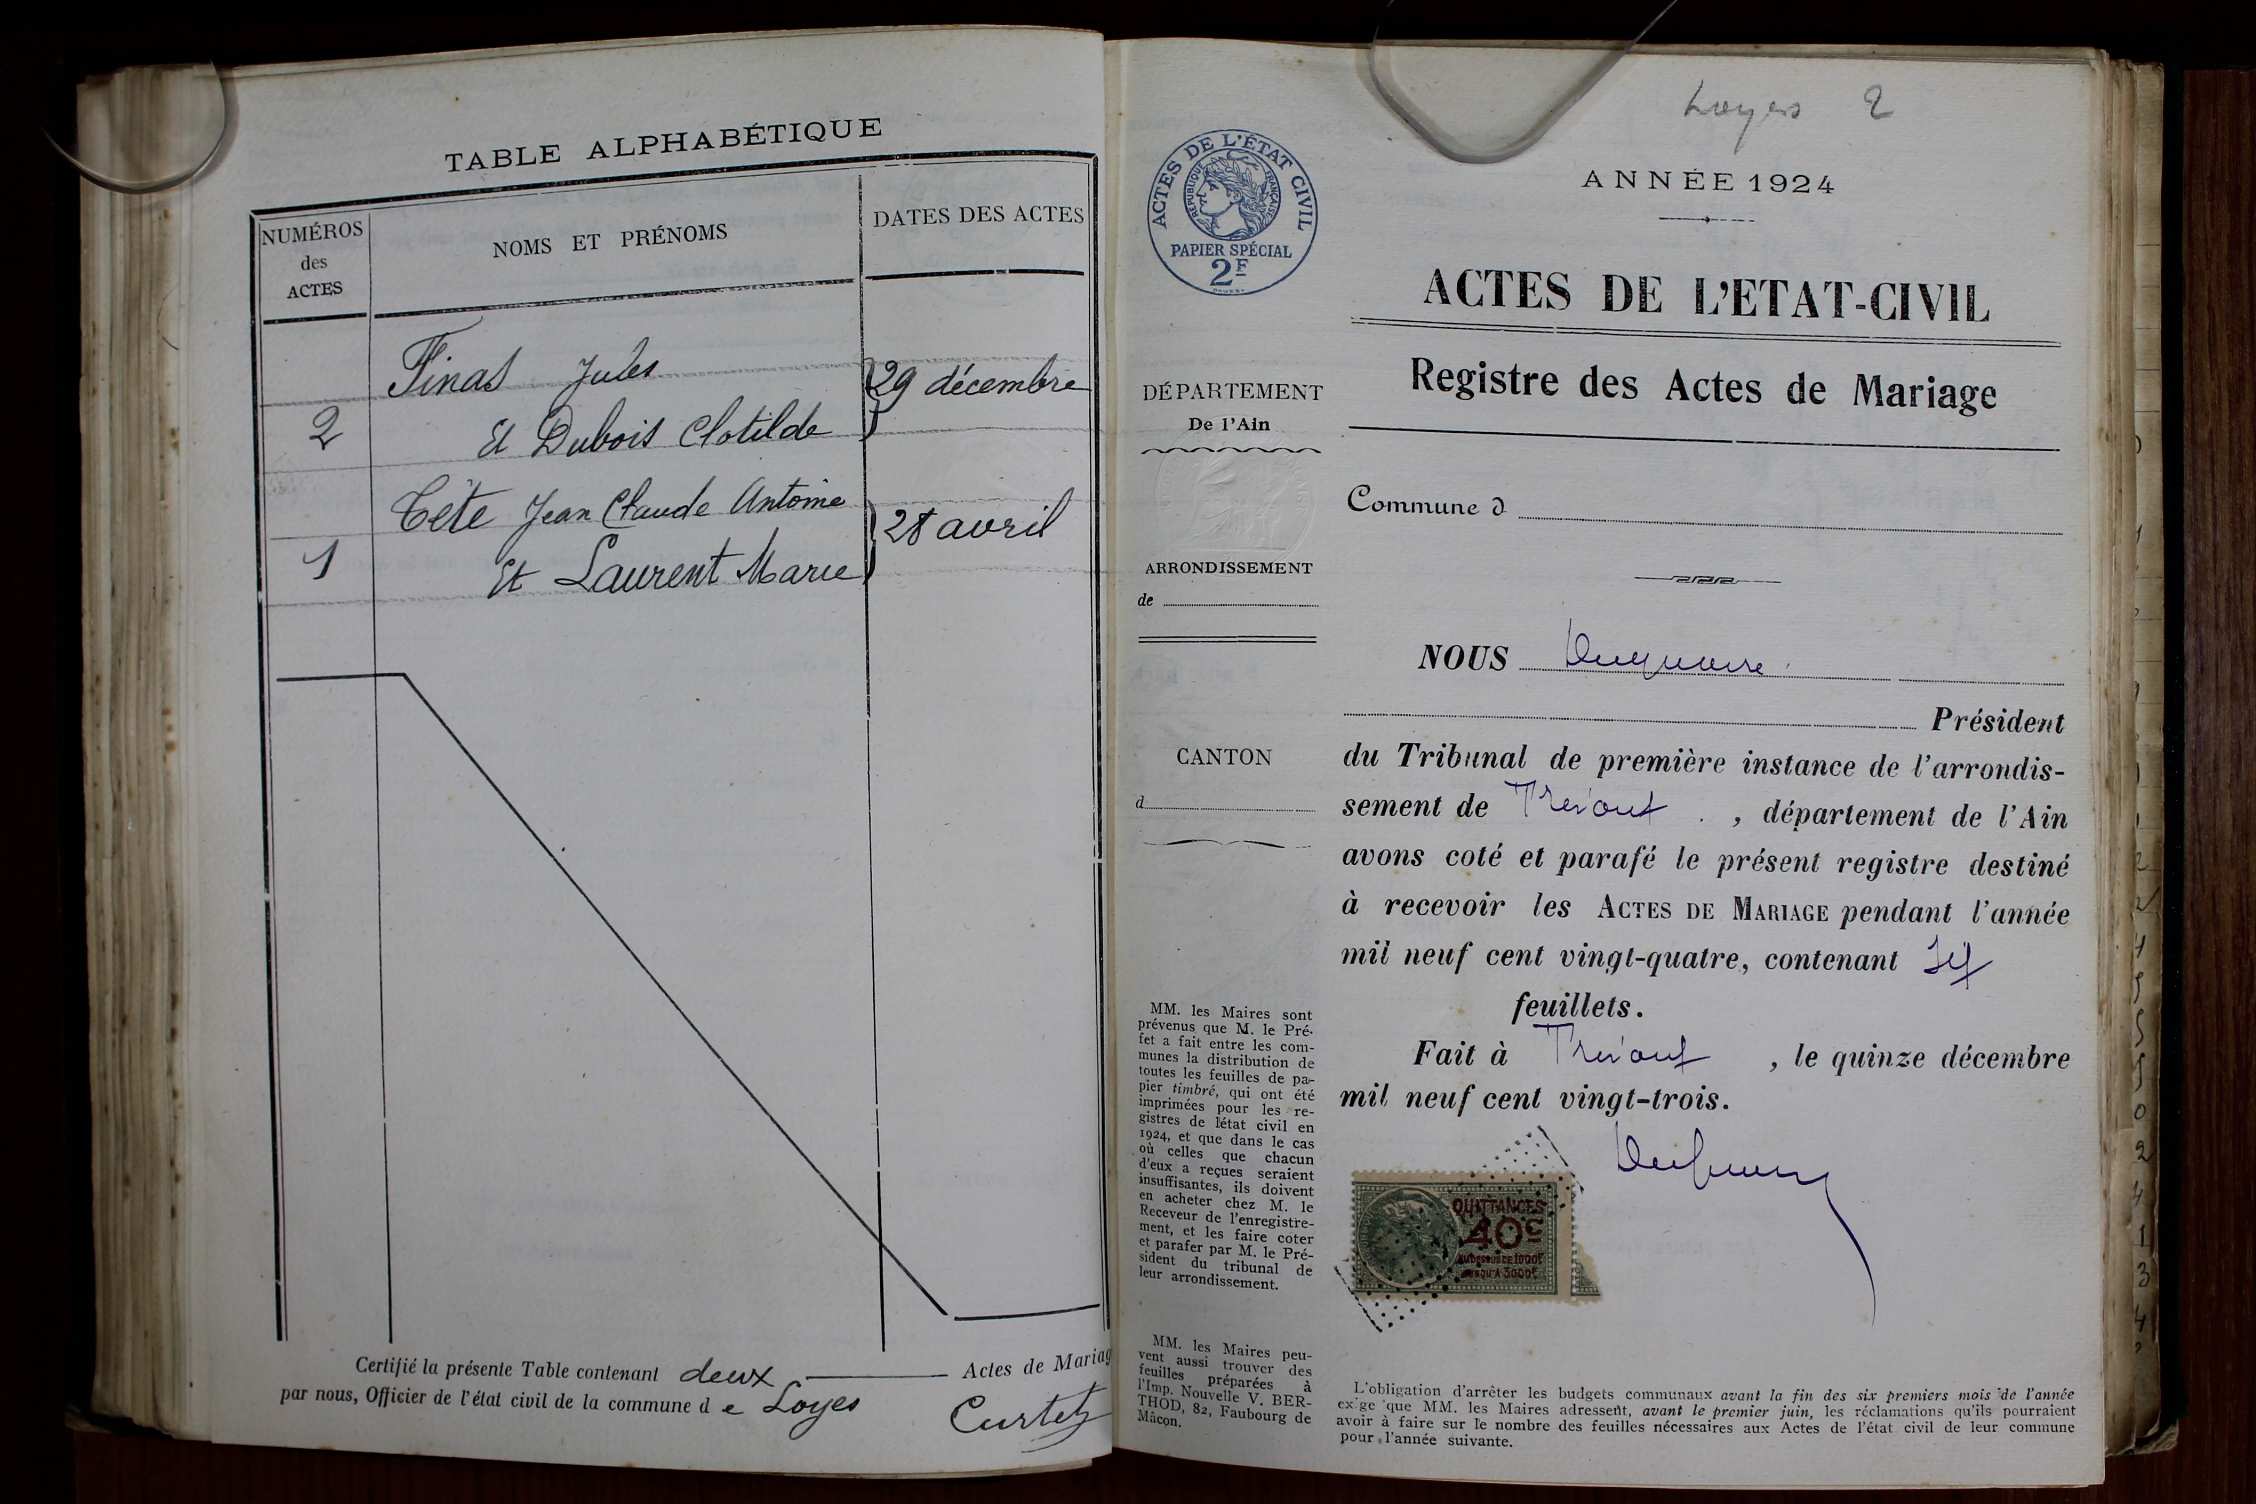 TABLE ALPHABÉTIQUE
NUMÉROS
des
ACTES
NOMS ET PRÉNOMS
DATES DES ACTES
Finas Jules
29 décembre
2 et Dubois Clotilde
Tête Jean Claude Antoine
28 avril
1 et Laurent Marie
Certifié la présente Table contenant deux Actes de Mariag
par nous, Officier de l'état civil de la commune d e Loyes
Curtet
Loyes 2
ANNÉE 1924
ACTES DE L'ÉTAT CIVIL
RÉPUBLIQUE FRANÇAISE
PAPIER SPÉCIAL
2F
ACTES DE L'ETAT-CIVIL
Registre des Actes de Mariage
DÉPARTEMENT
De l'Ain
Commune d
ARRONDISSEMENT
de
CANTON
d
NOUS
Président
du Tribunal de première instance de l'arrondis-
sement de Trévoux, département de l'Ain
avons coté et parafé le présent registre destiné
à recevoir les ACTES DE MARIAGE pendant l'année
mil neuf cent vingt-quatre, contenant
feuillets.
Fait à Trévoux, le quinze décembre
mil neuf cent vingt-trois.
QUITTANCES
40c
AU DESSUS DE 1000F
JUSQU'A 3000F
MM. les Maires sont
prévenus que M. le Pré-
fet a fait entre les com-
munes la distribution de
toutes les feuilles de pa-
pier timbré, qui ont été
imprimées pour les re-
gistres de l'état civil en
1924, et que dans le cas
où celles que chacun
d'eux a reçues seraient
insuffisantes, ils doivent
en acheter chez M. le
Receveur de l'enregistre-
ment, et les faire coter
et parafer par M. le Pré-
sident du tribunal de
leur arrondissement.
MM. les Maires peu-
vent aussi trouver des
feuilles préparées à
l'Imp. Nouvelle V. BER-
THOD, 82, Faubourg de
Mâcon.
L'obligation d'arrêter les budgets communaux avant la fin des six premiers mois de l'année
exige que MM. les Maires adressent, avant le premier juin, les réclamations qu'ils pourraient
avoir à faire sur le nombre des feuilles nécessaires aux Actes de l'état civil de leur commune
pour l'année suivante.